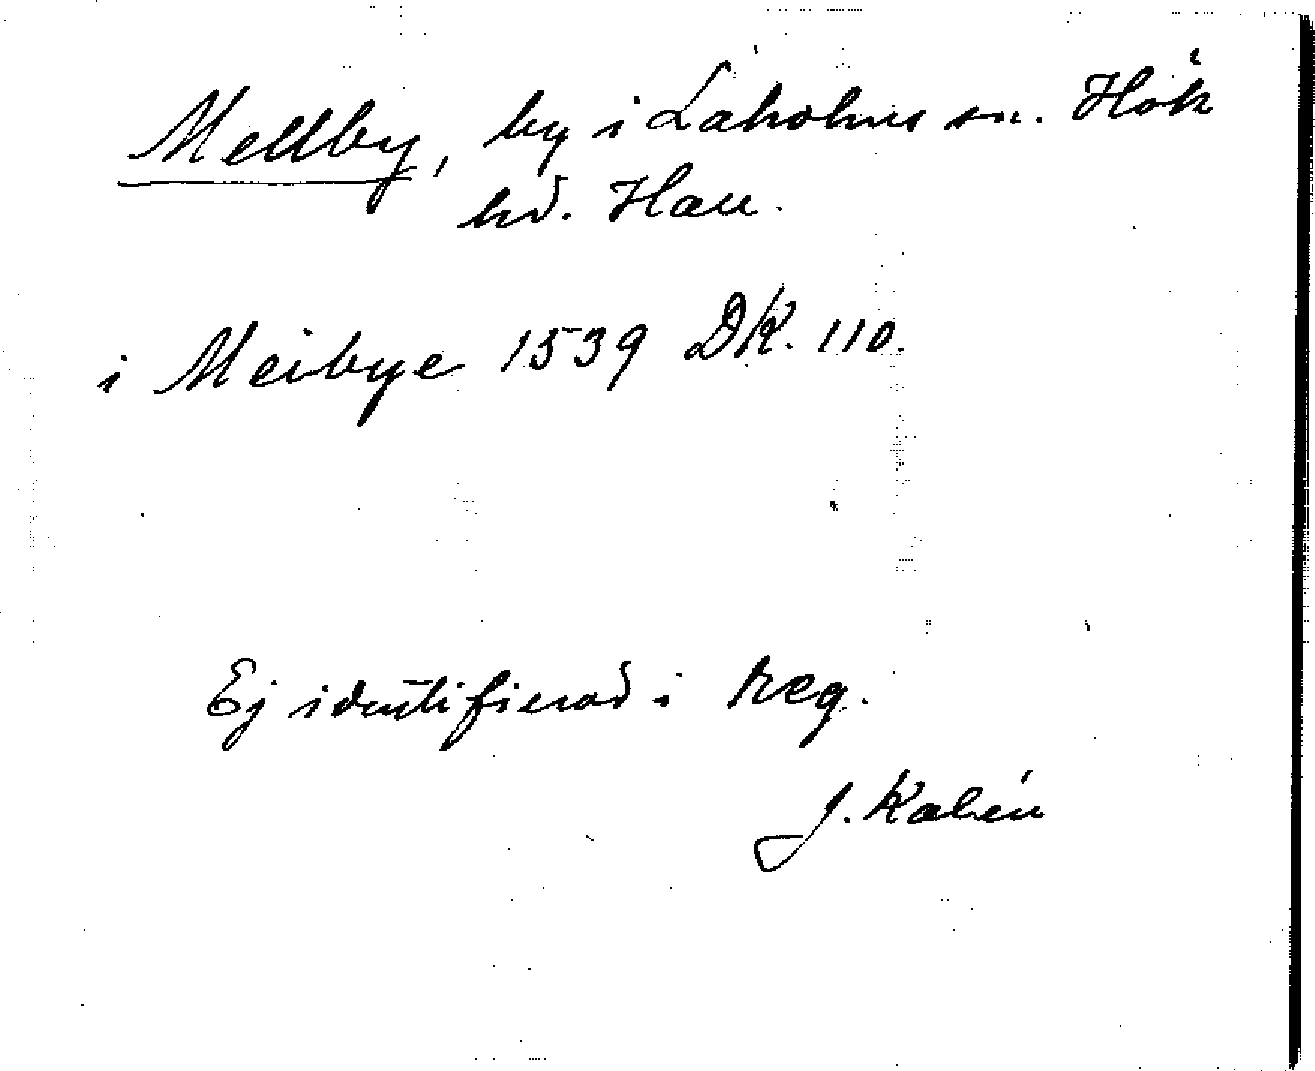 Mellby, by i Laholms sn. Hök
hd. Hall.
i Meibye 1539 DK. 110.
Ej identifierad i reg.
J. Kalén